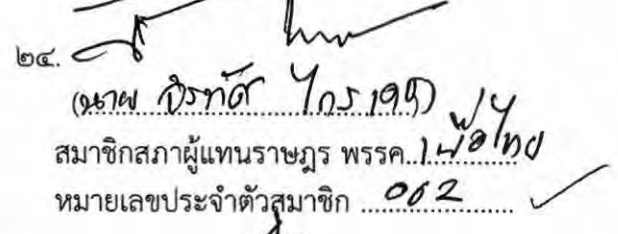 ๒๔.
(นาย จิรทัศ ไกรเดชา)
สมาชิกสภาผู้แทนราษฎร พรรค เพื่อไทย
หมายเลขประจำตัวสมาชิก 062